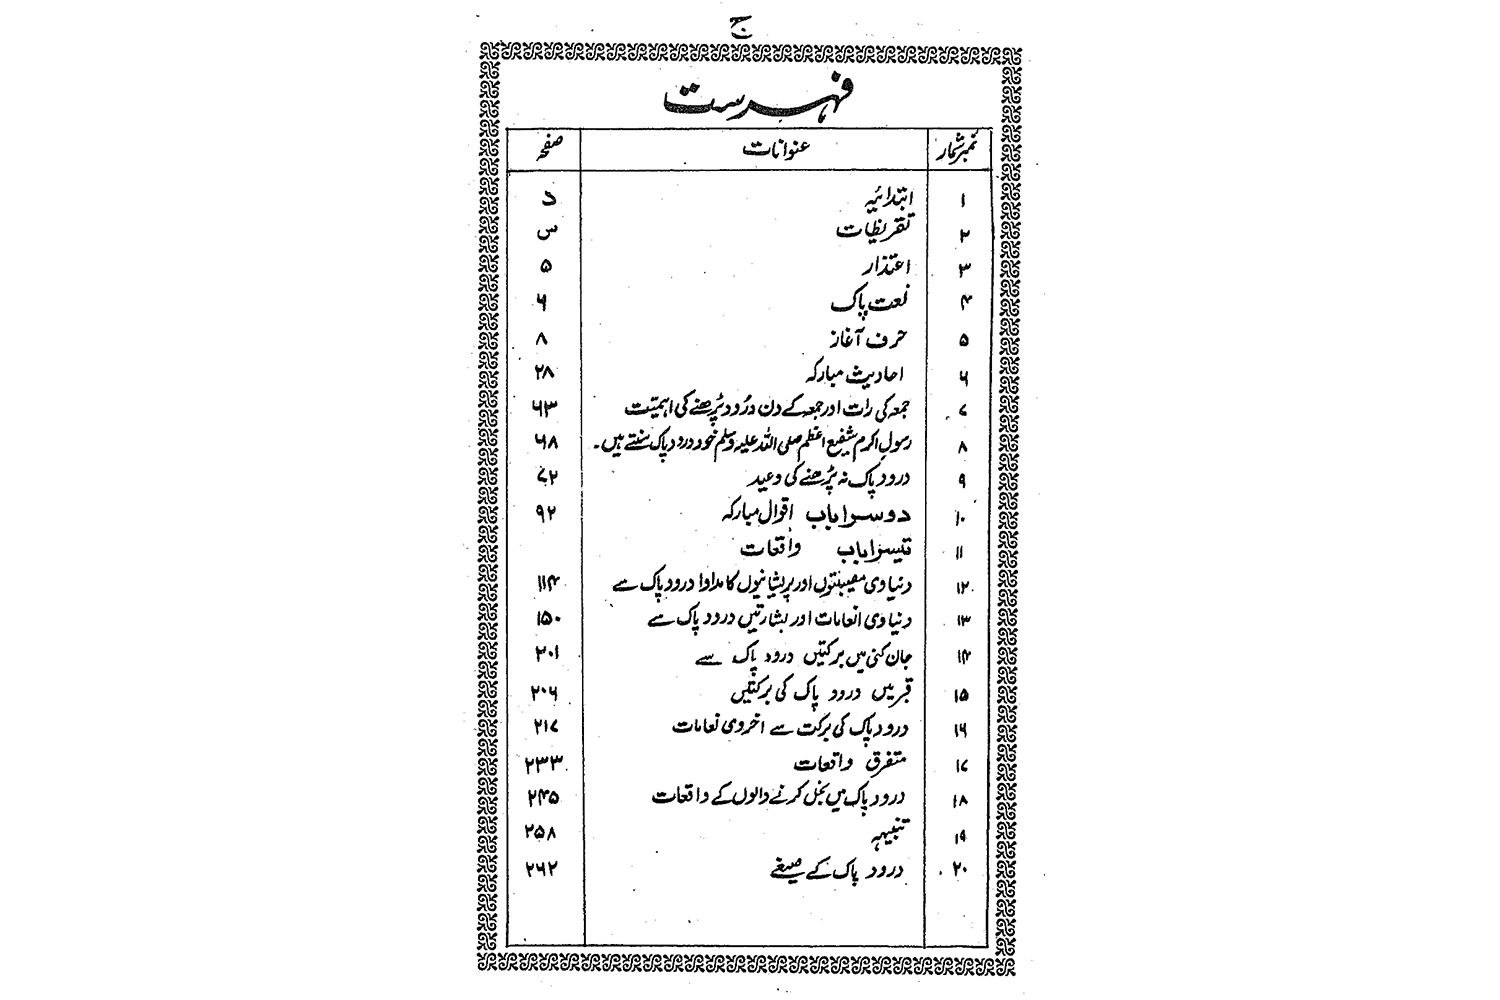 ج
فہرست
نمبر شمار عنوانات صفحہ
۱ ابتدائیہ د
۲ تقریظات س
۳ اعتذار ۵
۴ نعت پاک ۶
۵ حرف آغاز ۸
۶ احادیث مبارکہ ۲۸
۷ جمعہ کی رات اور جمعہ کے دن درُود پڑھنے کی اہمیّت ۶۳
۸ رسولِ اکرم شفیع اعظم صلی اللہ علیہ وسلم خود درود پاک سنتے ہیں۔ ۶۸
۹ درود پاک نہ پڑھنے کی وعید ۷۲
۱۰ دوسرا باب اقوال مبارکہ ۹۲
۱۱ تیسرا باب واقعات
۱۲ دنیاوی مصیبتوں اور پریشانیوں کا مداوا درود پاک سے ۱۱۴
۱۳ دنیاوی انعامات اور بشارتیں درود پاک سے ۱۵۰
۱۴ جان کنی میں برکتیں درود پاک سے ۲۰۱
۱۵ قبر میں درود پاک کی برکتیں ۲۰۶
۱۶ درود پاک کی برکت سے اخروی نعامات ۲۱۷
۱۷ متفرق واقعات ۲۳۳
۱۸ درود پاک میں بخل کرنے والوں کے واقعات ۲۴۵
۱۹ تنبیہہ ۲۵۸
۲۰ درود پاک کے صیغے ۲۶۲